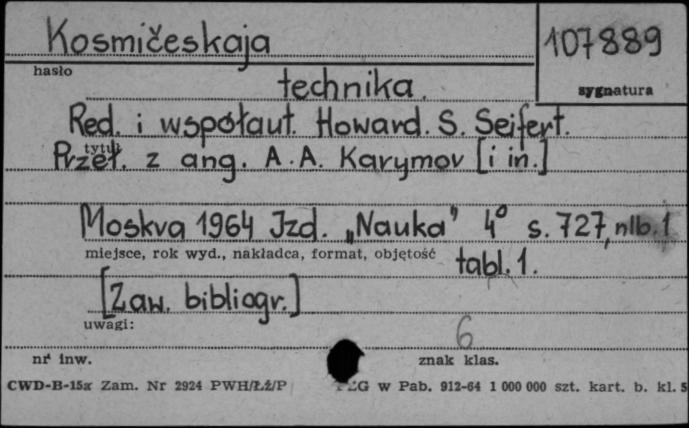 Kosmičeskaja
107889
hasło
technika.
sygnatura
Red. i współaut. Howard. S. Seifert.
tytuł
Przeł. z ang. A. A. Karymov [i in.]
Moskva 1964 Izd. „Nauka" 4° s. 727, nlb. 1
miejsce, rok wyd., nakładca, format, objętość
tabl. 1.
[Zaw. bibliogr.]
uwagi:
6
nr inw.
znak klas.
CWD-B-15x Zam. Nr 2924 PWH/Łż/P G w Pab. 912-64 1 000 000 szt. kart. b. kl. 5